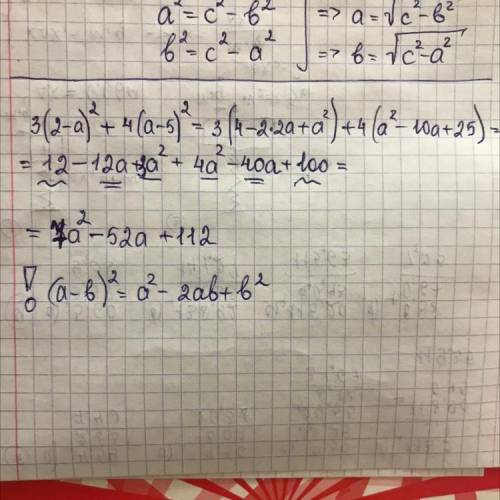 a² = c² - b² => a = √c² - b²
b² = c² - a² => b = √c² - a²
3(2-a)² + 4(a-5)² = 3(4-2·2a+a²)+4(a²-10a+25) =
= 12 - 12a + 3a² + 4a² - 40a + 100 =
= 7a² - 52a + 112
! (a-b)² = a² - 2ab + b²